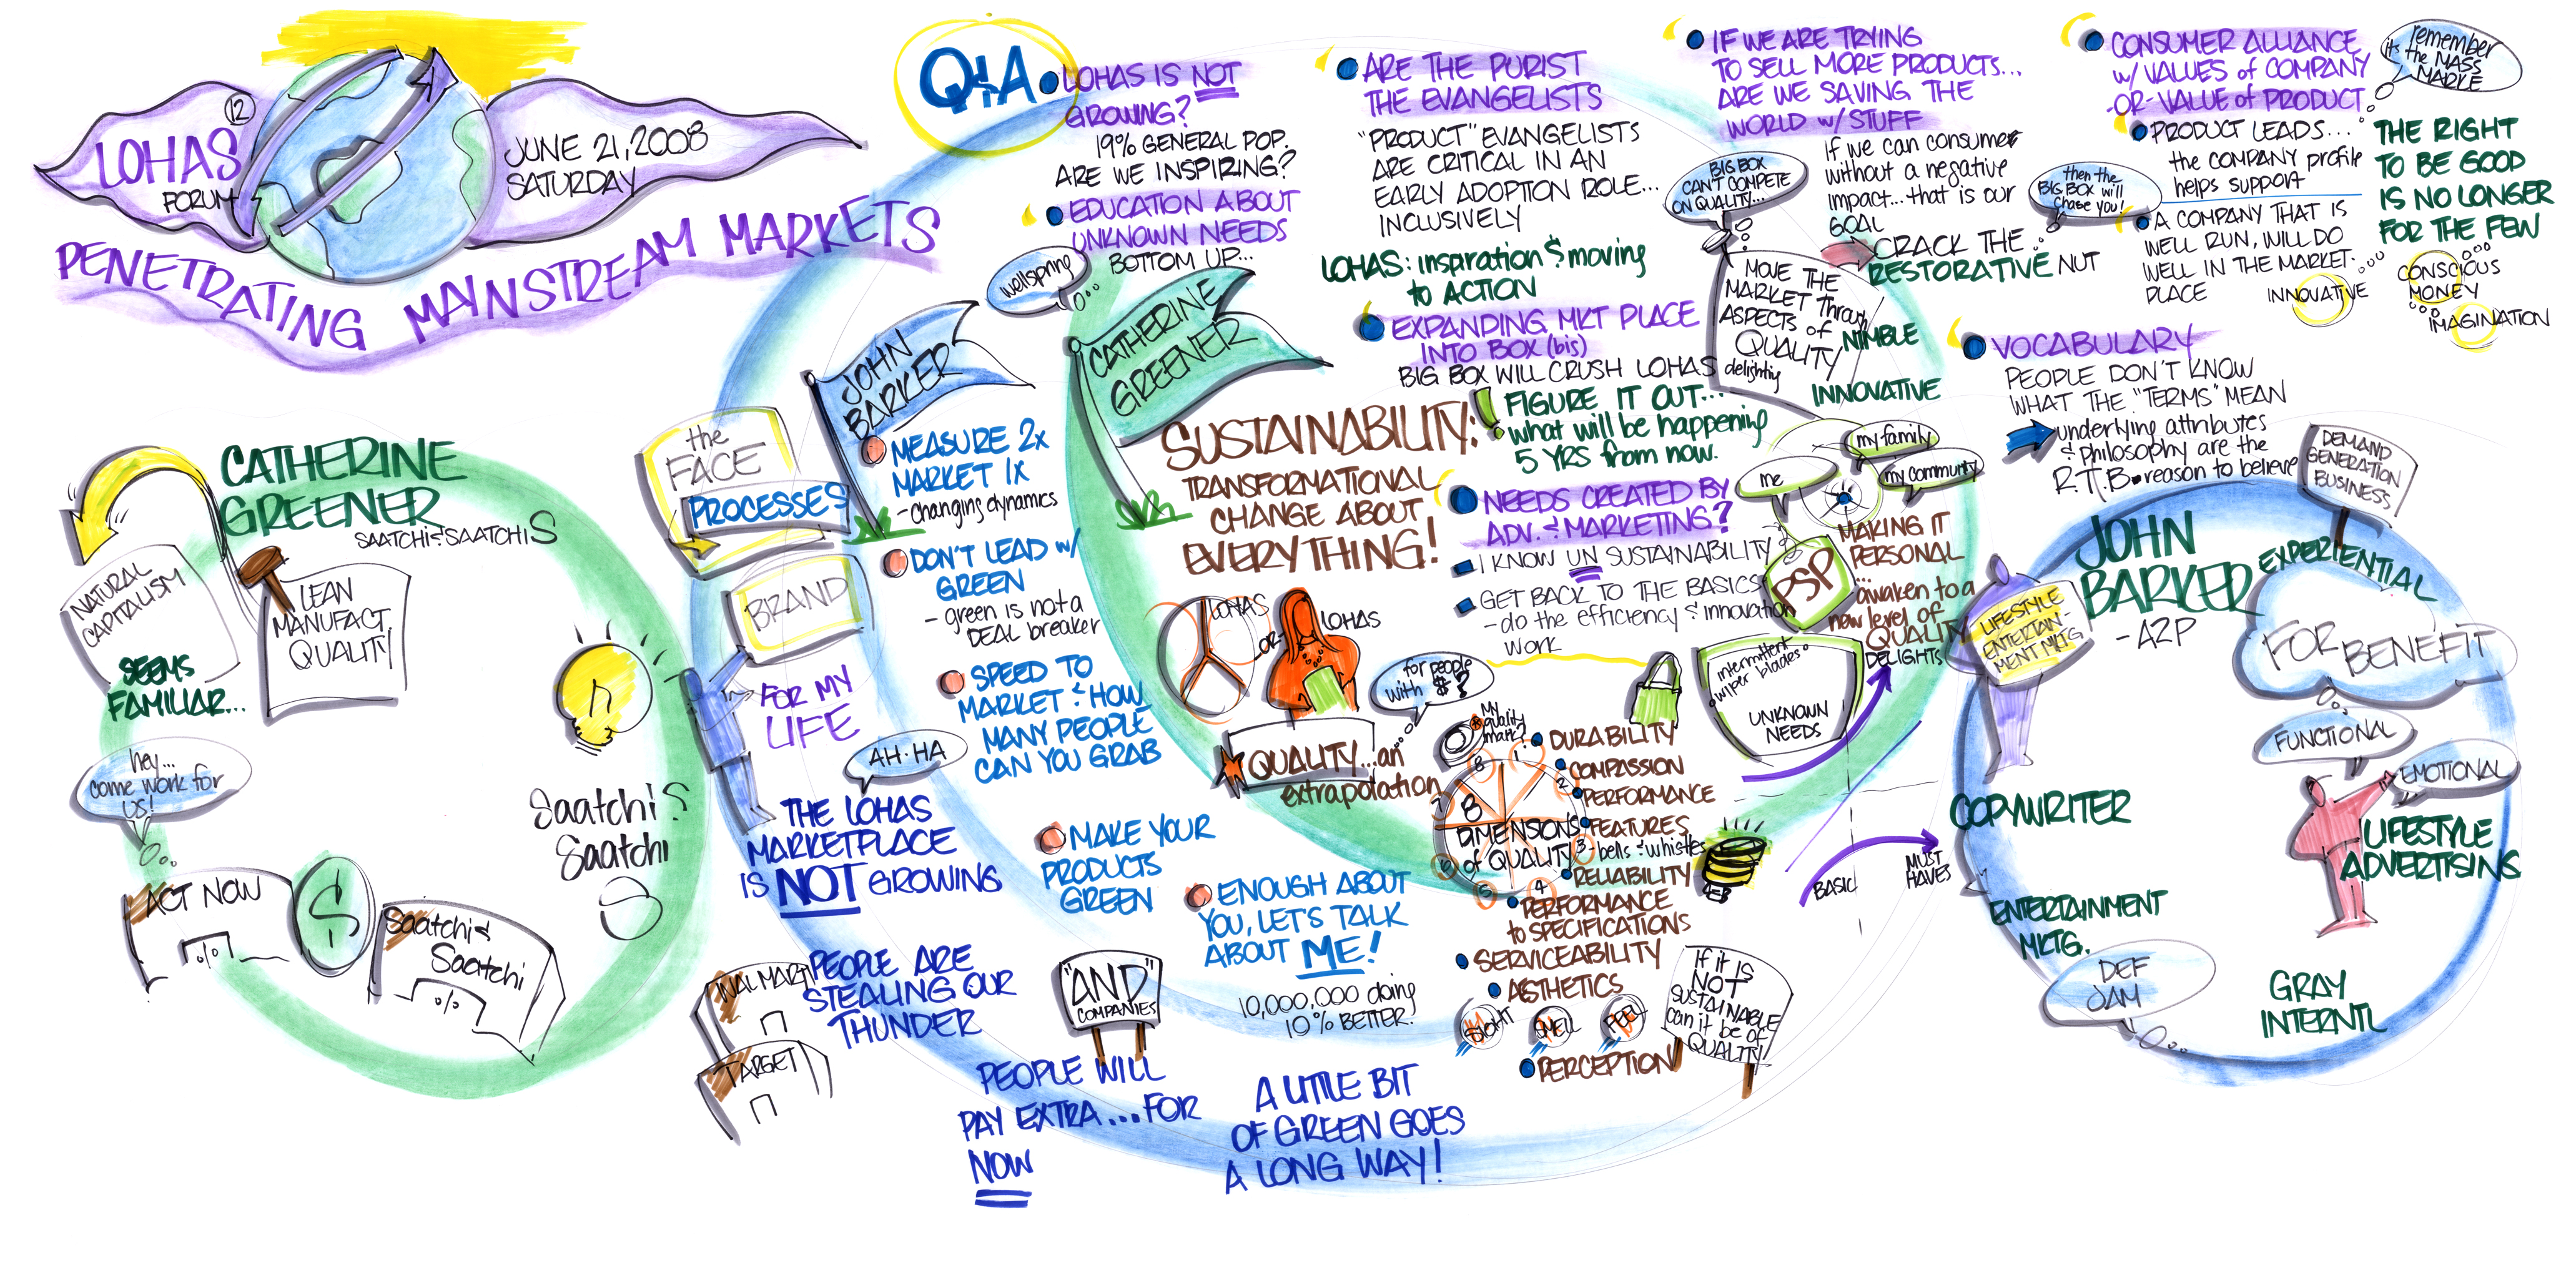 LOHAS
12
FORUM
JUNE 21, 2008
SATURDAY
PENETRATING MAINSTREAM MARKETS
CATHERINE
GREENER
SAATCHI & SAATCHI S
NATURAL
CAPITALISM
SEEMS
FAMILIAR...
LEAN
MANUFACT.
QUALITY
hey...
come work for
US!
ACT NOW
$
Saatchi &
Saatchi
Saatchi &
Saatchi
S
the
FACE
PROCESSES
BRAND
FOR MY
LIFE
AH-HA
THE LOHAS
MARKETPLACE
IS NOT GROWING
WALMART
TARGET
PEOPLE ARE
STEALING OUR
THUNDER
"AND"
COMPANIES
PEOPLE WILL
PAY EXTRA....FOR
NOW
A LITTLE BIT
OF GREEN GOES
A LONG WAY!
JOHN
BARKER
MEASURE 2x
MARKET 1x
- changing dynamics
DON'T LEAD w/
GREEN
- green is not a
DEAL breaker
SPEED TO
MARKET & HOW
MANY PEOPLE
CAN YOU GRAB
MAKE YOUR
PRODUCTS
GREEN
ENOUGH ABOUT
YOU, LET'S TALK
ABOUT ME!
10,000,000 doing
10% BETTER.
CATHERINE
GREENER
SUSTAINABILITY:
TRANSFORMATIONAL
CHANGE ABOUT
EVERYTHING!
LOHAS
-OR-
LOHAS
for people
with $?
QUALITY...an
extrapolation
My
quality
mark?
8
DIMENSIONS
of QUALITY
1
DURABILITY
COMPASSION
2
PERFORMANCE
FEATURES
3
- bells & whistles
RELIABILITY
4
PERFORMANCE
to SPECIFICATIONS
5
SERVICEABILITY
6
AESTHETICS
7
SIGHT
SMELL
FEEL
8
PERCEPTION
If it IS
NOT
SUSTAINABLE
can it be of
QUALITY!
Q&A
LOHAS IS NOT
GROWING?
19% GENERAL POP.
ARE WE INSPIRING?
EDUCATION ABOUT
UNKNOWN NEEDS
BOTTOM UP...
wellspring
ARE THE PURIST
THE EVANGELISTS
"PRODUCT" EVANGELISTS
ARE CRITICAL IN AN
EARLY ADOPTION ROLE...
INCLUSIVELY
LOHAS: inspiration & moving
to ACTION
EXPANDING MKT PLACE
INTO BOX (bis)
BIG BOX WILL CRUSH LOHAS
FIGURE IT OUT...
what will be happening
5 YRS from now.
NEEDS CREATED BY
ADV. & MARKETING?
I KNOW UN SUSTAINABILITY
GET BACK TO THE BASICS
- do the efficiency & innovation
work
IF WE ARE TRYING
TO SELL MORE PRODUCTS...
ARE WE SAVING THE
WORLD w/ STUFF
if we can consume
without a negative
impact...that is our
GOAL
BIG BOX
CAN'T COMPETE
ON QUALITY...
CRACK THE
RESTORATIVE NUT
then the
BIG BOX will
chase you!
MOVE THE
MARKET through
ASPECTS of
QUALITY
delighting
NIMBLE
INNOVATIVE
me
my family
my community
PSP
MAKING IT
PERSONAL
...awaken to a
new level of
QUALITY
intermittent
wiper blades
UNKNOWN
NEEDS
DELIGHTS
BASIC
MUST
HAVES
CONSUMER ALLIANCE
w/ VALUES of COMPANY
-OR- VALUE of PRODUCT
PRODUCT LEADS...
the COMPANY profile
helps support
A COMPANY THAT IS
WELL RUN, WILL DO
WELL IN THE MARKET-
PLACE
INNOVATIVE
remember
it's the MASS
MARKE
THE RIGHT
TO BE GOOD
IS NO LONGER
FOR THE FEW
CONSCIOUS
MONEY
IMAGINATION
VOCABULARY
PEOPLE DON'T KNOW
WHAT THE "TERMS" MEAN
underlying attributes
& philosophy are the
R.T.B. reason to believe
DEMAND
GENERATION
BUSINESS
JOHN
BARKER
- AZP
LIFESTYLE
ENTERTAIN-
MENT MKTG
EXPERIENTIAL
FOR BENEFIT
FUNCTIONAL
EMOTIONAL
LIFESTYLE
ADVERTISING
COPYWRITER
ENTERTAINMENT
MKTG.
DEF
JAM
GRAY
INTERNTL